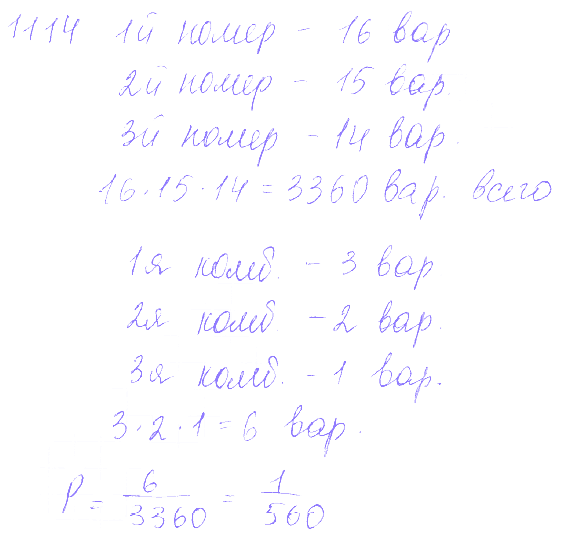 1114 1й номер - 16 вар
2й номер - 15 вар.
3й номер - 14 вар.
16·15·14 = 3360 вар. всего
1я комб. - 3 вар
2я комб. - 2 вар.
3я комб. - 1 вар.
3·2·1 = 6 вар.
P = 6/3360 = 1/560